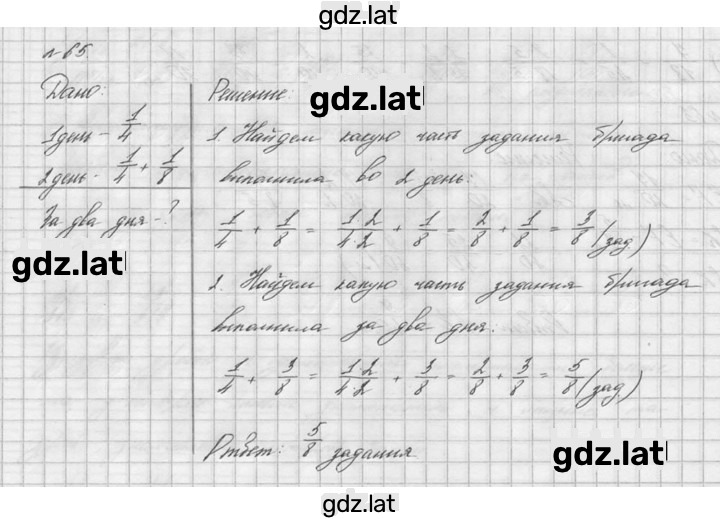 gdz.lat
№65.
Дано:
1 день - 1/4
2 день - 1/4 + 1/8
За два дня - ?
gdz.lat
Решение:
gdz.lat
1. Найдем какую часть задания бригада
выполнила во 2 день:
1/4 + 1/8 = 1·2/4·2 + 1/8 = 2/8 + 1/8 = 3/8 (зад.)
2. Найдем какую часть задания бригада
выполнила за два дня:
1/4 + 3/8 = 1·2/4·2 + 3/8 = 2/8 + 3/8 = 5/8 (зад.)
Ответ: 5/8 задания
gdz.lat
gdz.lat